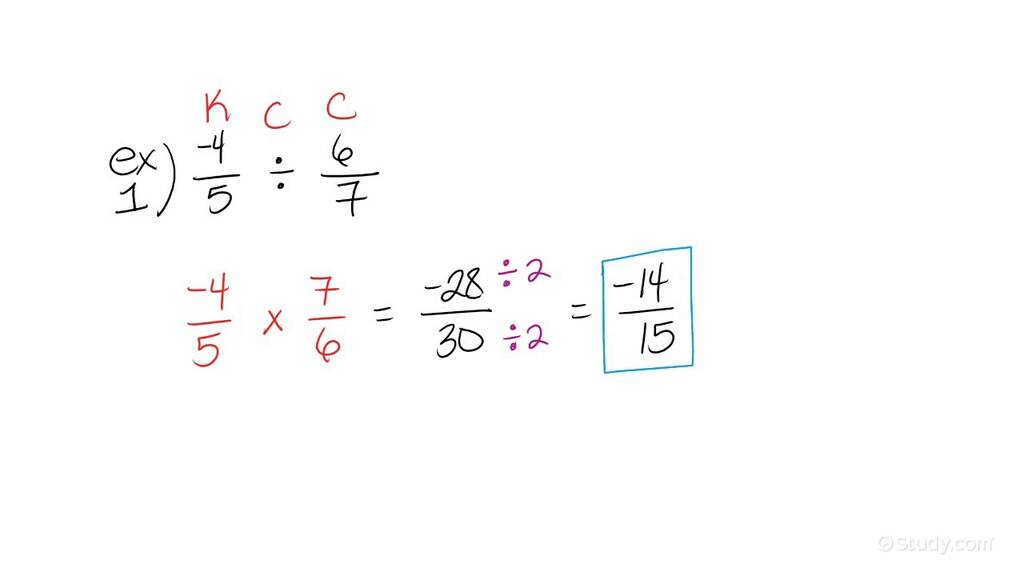 K C C
ex 1) -4/5 ÷ 6/7
-4/5 x 7/6 = -28/30 ÷2/÷2 = -14/15
Study.com